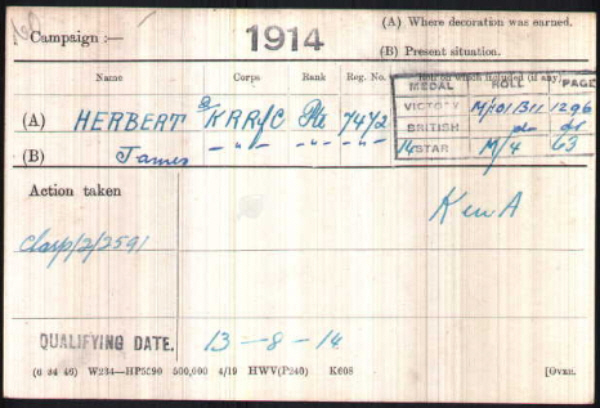 Campaign :— 1914 (A) Where decoration was earned.
(B) Present situation.
Name Corps Rank Reg. No. Roll on which included (if any)
MEDAL ROLL PAGE
(A) HERBERT 2/KRRfC Pte 7472
VICTORY M/101B11 1296
BRITISH do do
(B) James – " – – " – – " –
14 STAR M/4 63
Action taken
KewA
Clasp/2/2591
QUALIFYING DATE. 13–8–14
(6 34 46) W234—HP5590 500,000 4/19 HWV(P240) K608 [Over.